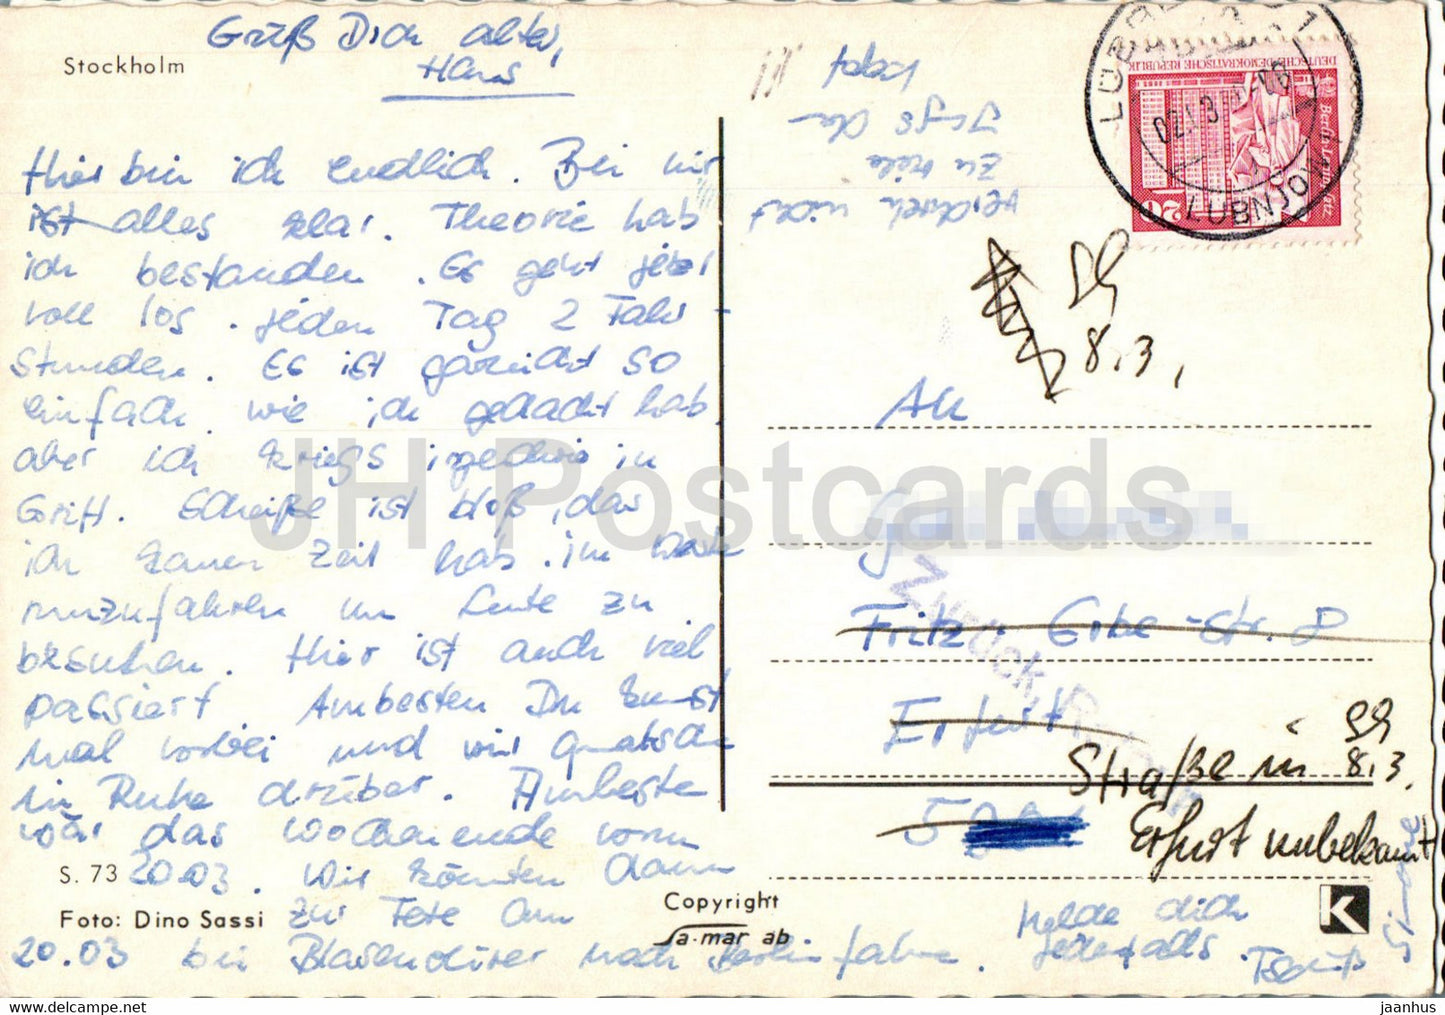 Grüß Dich alter,
Hans
Stockholm
Hier bin ich endlich. Bei mir
ist alles klar. Theorie hab
ich bestanden. Es geht jetzt
voll los. jeden Tag 2 Fahr-
stunden. Es ist garnicht so
einfach wie ich gedacht hab.
aber ich kriegs irgendwie in
Griff. Scheiße ist bloß, das
ich kaum Zeit hab. im
rumzufahren um Leute zu
besuchen. Hier ist auch viel
passiert. Ambesten Du kommst
mal vorbei und wir quatschen
in Ruhe drüber. Ambeste
wär das Wochenende vom
S. 73 20.03. Wir könnten dann
Foto: Dino Sassi zur Fete am
20.03 bei nach Berlin fahren. Melde dich
jedenfalls. Tschüß
Simone
zu viele
DEUTSCHE DEMOKRATISCHE REPUBLIK
Berlin-Leninplatz
20
LÜBBENAU 1
LUBNJOW
8.3.
An
Fritz-Erbe-Str. 8
Erfurt
Zurück, Retour
Straße in
8.3.
Erfurt unbekannt
Copyright
Sa-mar ab
K
JH Postcards
jaanhus